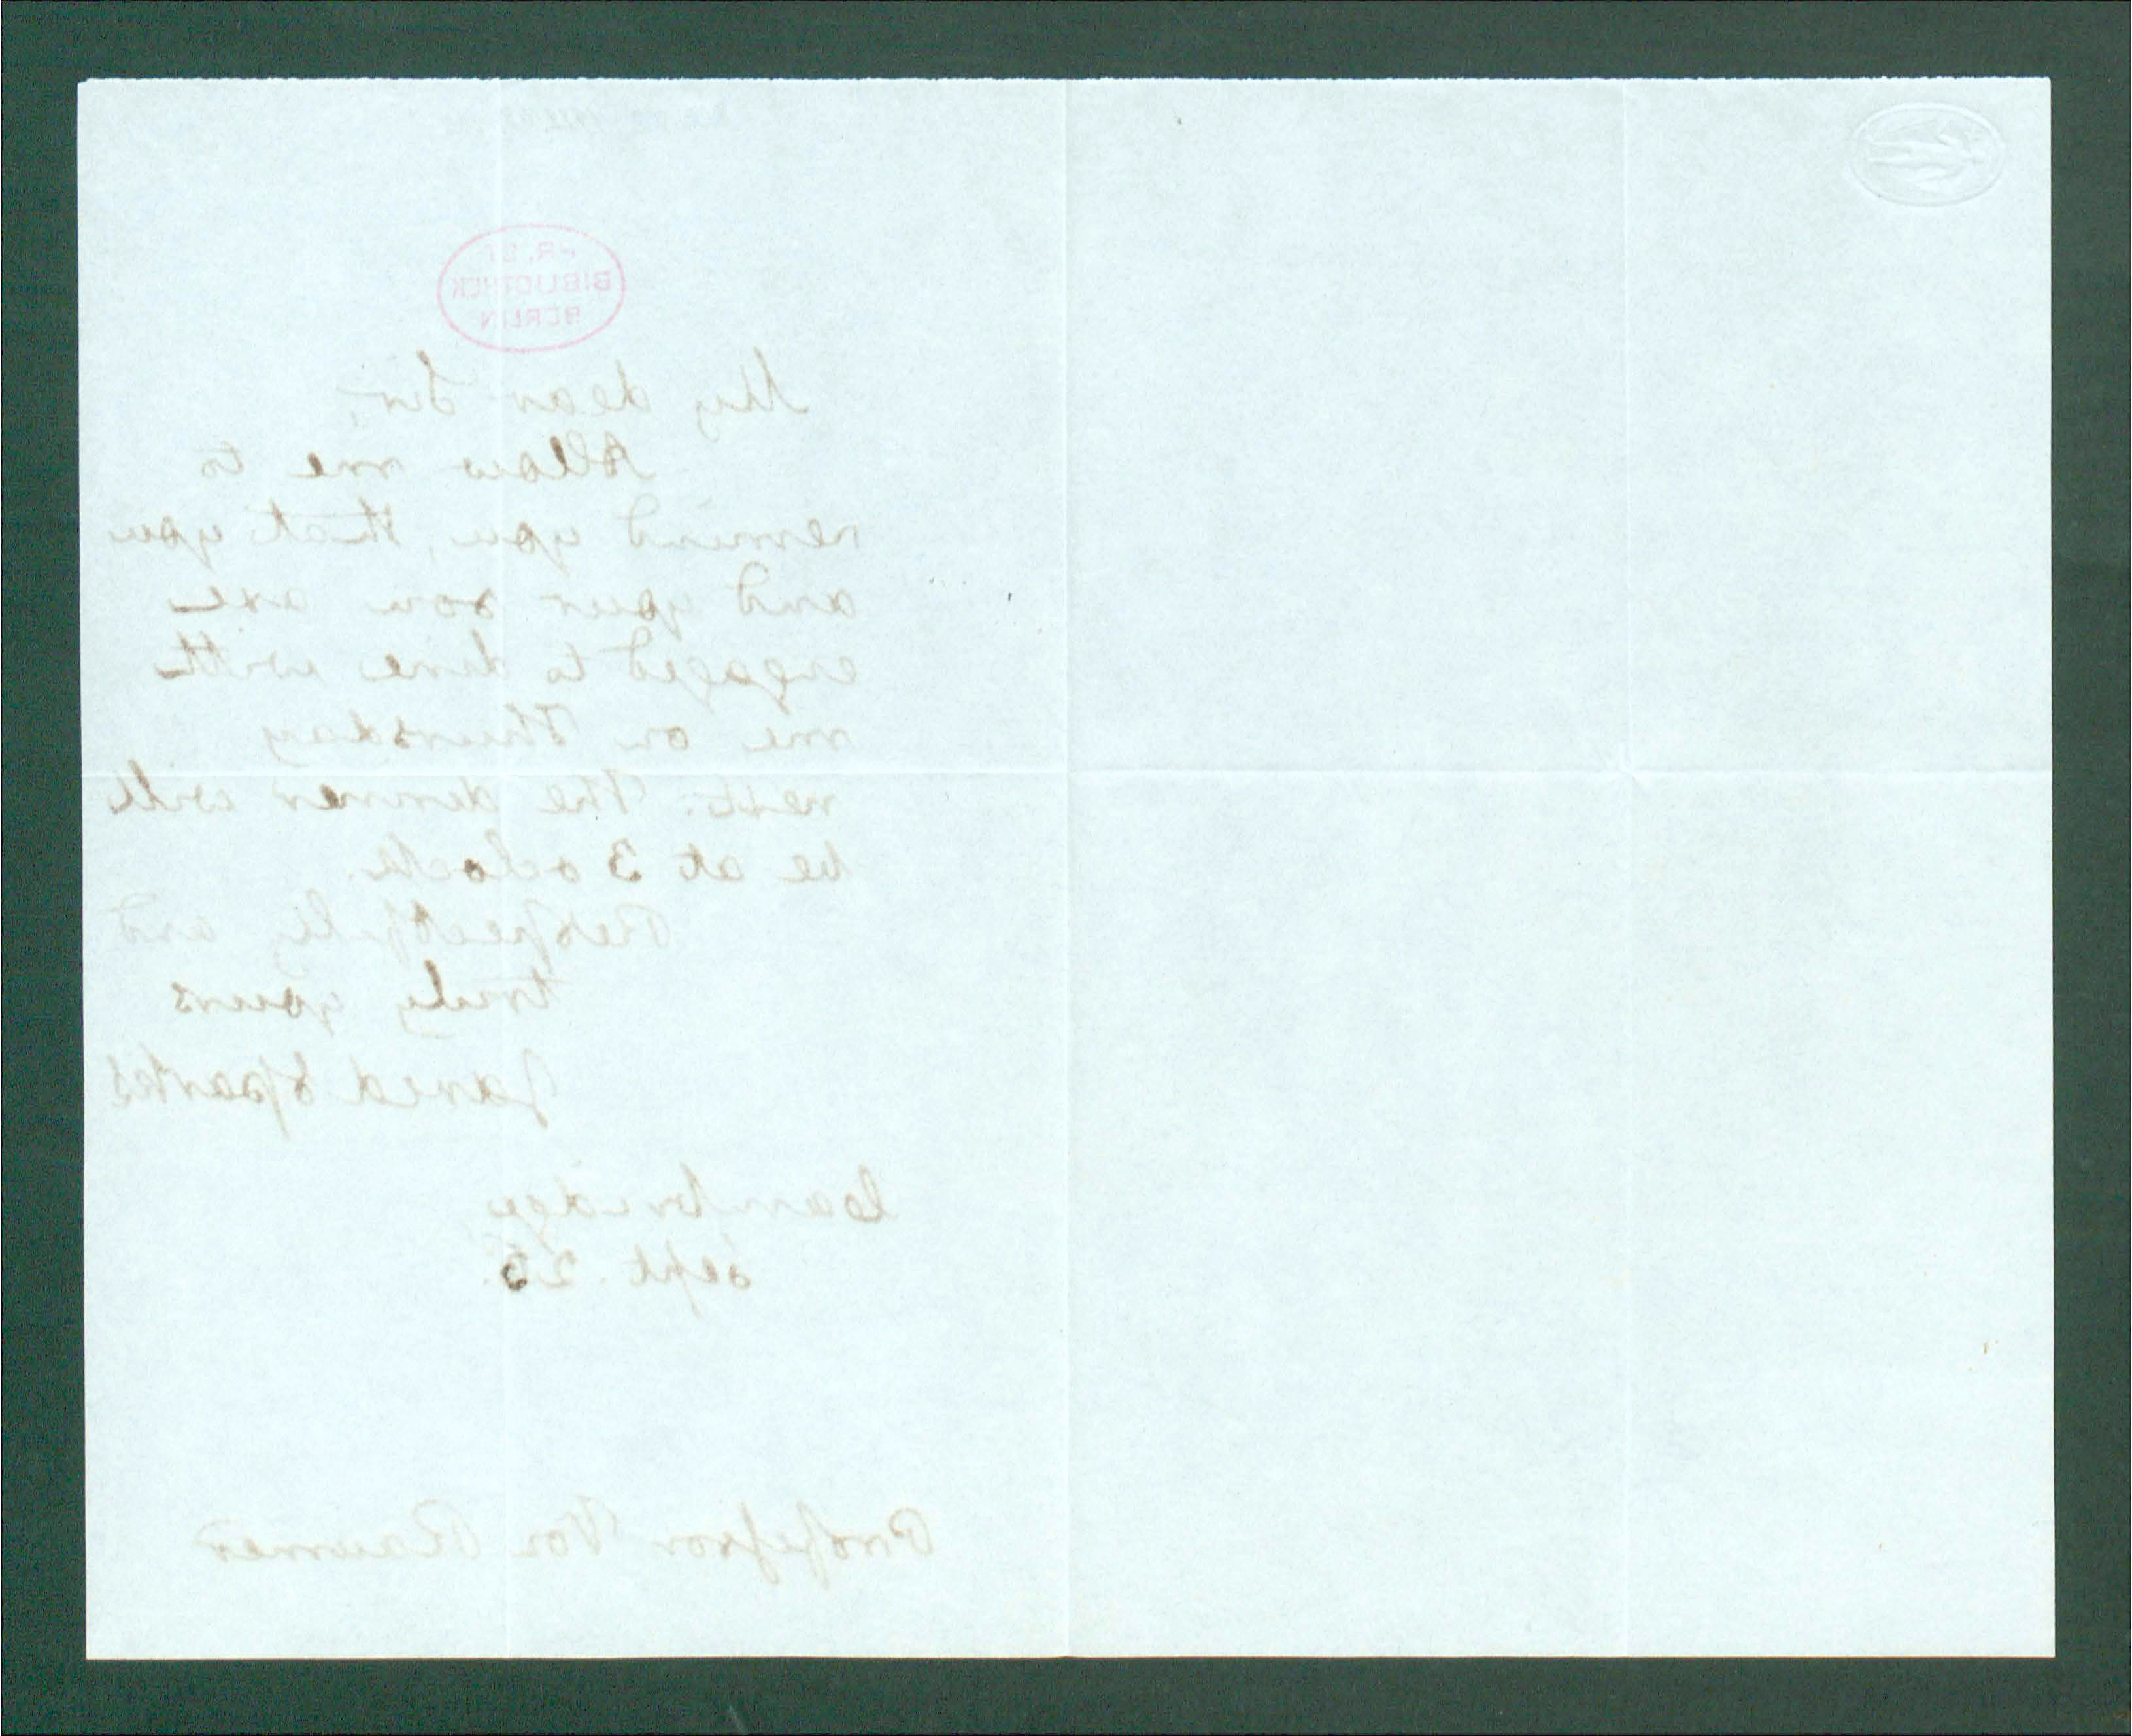 BIBLIOTHEK
BERLIN
My dear Sir,
Allow me to
remind you, that you
and your son are
engaged to dine with
me on Thursday
next. The dinner will
be at 3 oclock.
Respectfully and
truly yours
Jared Sparks
Cambridge,
Sept. 25.
Professor Von Raumer